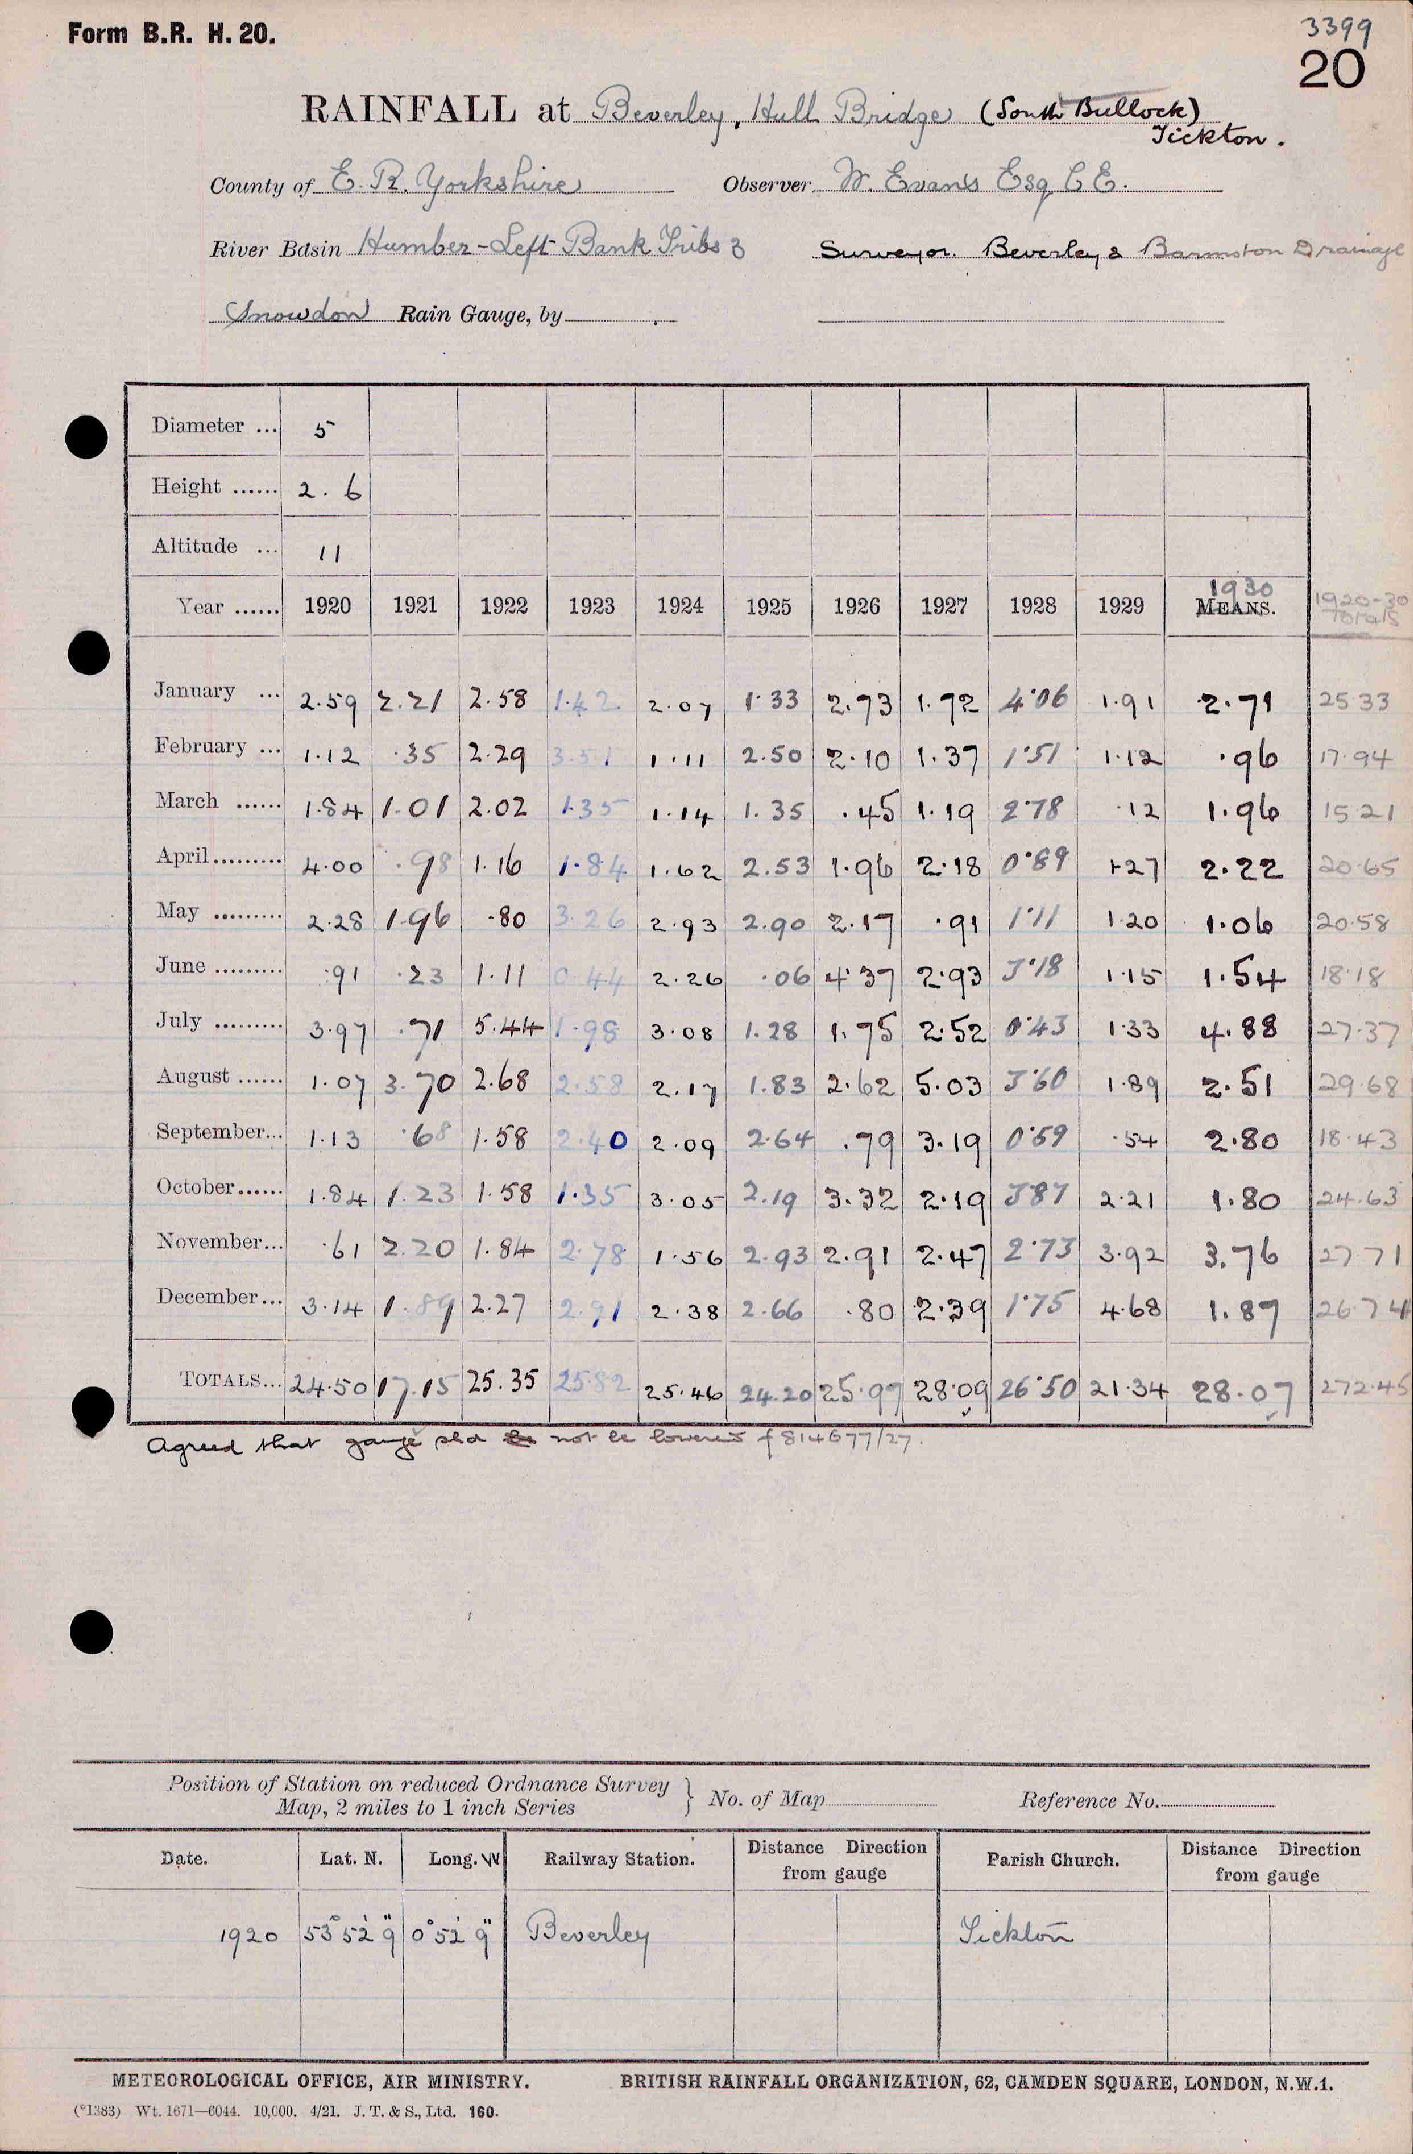 Form B.R. H. 20.
3399
20
RAINFALL at Beverley, Hull Bridge (South Bullock)
Tickton.
County of E. R. Yorkshire Observer W. Evans Esq C E.
River Basin Humber - Left Bank Tribs 3 Surveyor. Beverley & Barmston Drainage
Snowdon Rain Gauge, by
Diameter ... 5
Height ...... 2.6
Altitude ... 11
1930
Year ...... 1920 1921 1922 1923 1924 1925 1926 1927 1928 1929 MEANS. 1920-30
Totals
January ... 2.59 2.21 2.58 1.42 2.07 1.33 2.73 1.72 4.06 1.91 2.71 25.33
February ... 1.12 .35 2.29 3.51 1.11 2.50 2.10 1.37 1.51 1.12 .96 17.94
March ...... 1.84 1.01 2.02 1.35 1.14 1.35 .45 1.19 2.78 .12 1.96 15.21
April......... 4.00 .98 1.16 1.84 1.62 2.53 1.96 2.18 0.89 1.27 2.22 20.65
May ......... 2.28 1.96 .80 3.26 2.93 2.90 2.17 .91 1.11 1.20 1.06 20.58
June ......... .91 .23 1.11 0.44 2.26 .06 4.37 2.93 3.18 1.15 1.54 18.18
July ......... 3.97 .71 5.44 1.98 3.08 1.28 1.75 2.52 0.43 1.33 4.88 27.37
August ...... 1.07 3.70 2.68 2.58 2.17 1.83 2.62 5.03 3.60 1.89 2.51 29.68
September... 1.13 .68 1.58 2.40 2.09 2.64 .79 3.19 0.59 .54 2.80 18.43
October...... 1.84 1.23 1.58 1.35 3.05 2.19 3.32 2.19 3.87 2.21 1.80 24.63
November... .61 2.20 1.84 2.78 1.56 2.93 2.91 2.47 2.73 3.92 3.76 27.71
December... 3.14 1.89 2.27 2.91 2.38 2.66 .80 2.39 1.75 4.68 1.87 26.74
TOTALS... 24.50 17.15 25.35 25.82 25.46 24.20 25.97 28.09 26.50 21.34 28.07 272.45
Agreed that gauge shd not be lowered f 814677/27.
Position of Station on reduced Ordnance Survey
Map, 2 miles to 1 inch Series } No. of Map Reference No.
Date. Lat. N. Long. W Railway Station. Distance Direction from gauge Parish Church. Distance Direction from gauge
1920 53° 52' 9" 0° 52' 9" Beverley Tickton
METEOROLOGICAL OFFICE, AIR MINISTRY. BRITISH RAINFALL ORGANIZATION, 62, CAMDEN SQUARE, LONDON, N.W.1.
(*1383) Wt. 1671—6044. 10,000. 4/21. J. T. & S., Ltd. 160.